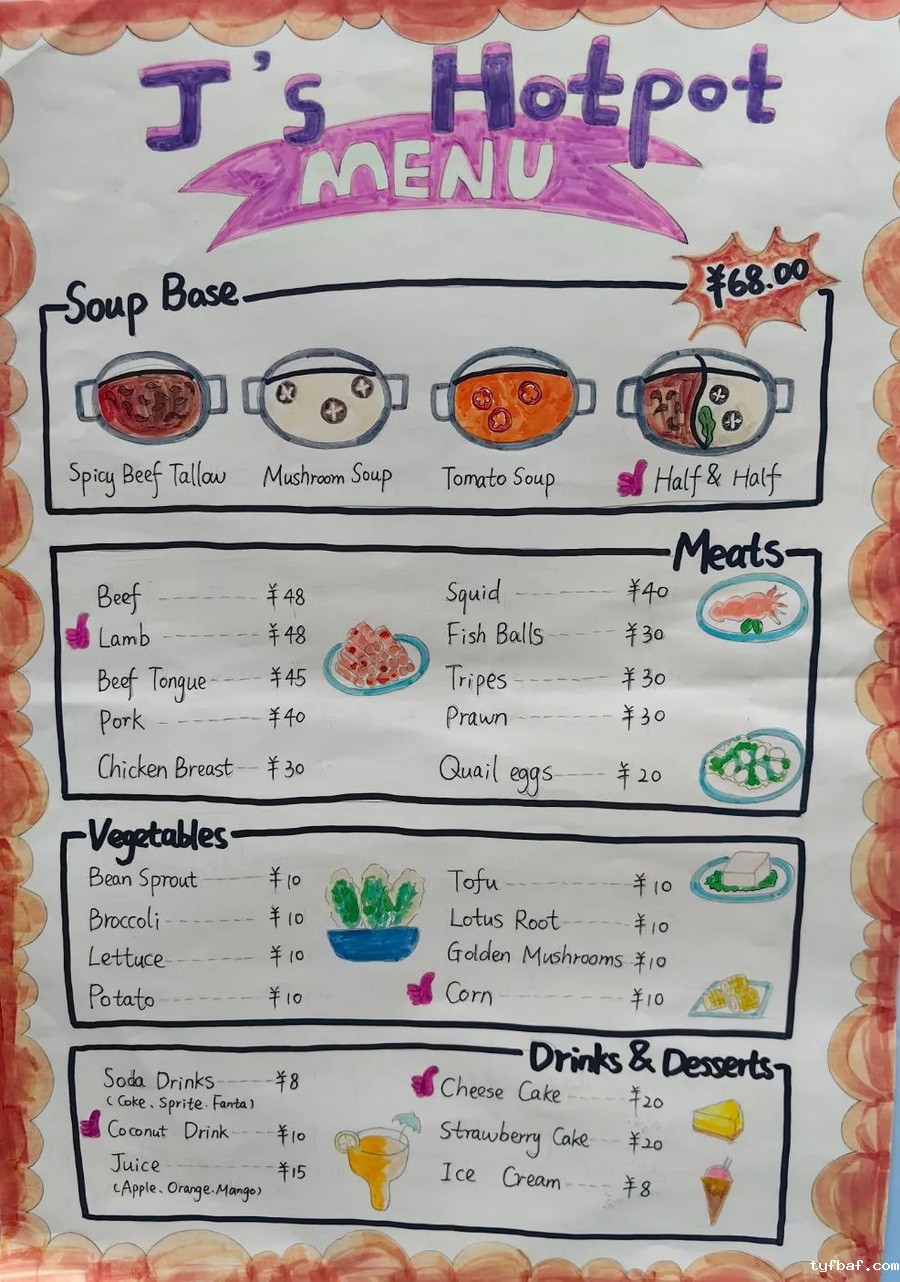 J's Hotpot
MENU
Soup Base
¥68.00
Spicy Beef Tallow
Mushroom Soup
Tomato Soup
Half & Half
Meats
Beef ¥48
Lamb ¥48
Beef Tongue ¥45
Pork ¥40
Chicken Breast ¥30
Squid ¥40
Fish Balls ¥30
Tripes ¥30
Prawn ¥30
Quail eggs ¥20
Vegetables
Bean Sprout ¥10
Broccoli ¥10
Lettuce ¥10
Potato ¥10
Tofu ¥10
Lotus Root ¥10
Golden Mushrooms ¥10
Corn ¥10
Drinks & Desserts
Soda Drinks ¥8
(Coke、Sprite.Fanta)
Coconut Drink ¥10
Juice ¥15
(Apple、Orange.Mango)
Cheese Cake ¥20
Strawberry Cake ¥20
Ice Cream ¥8
tyfbaf.com